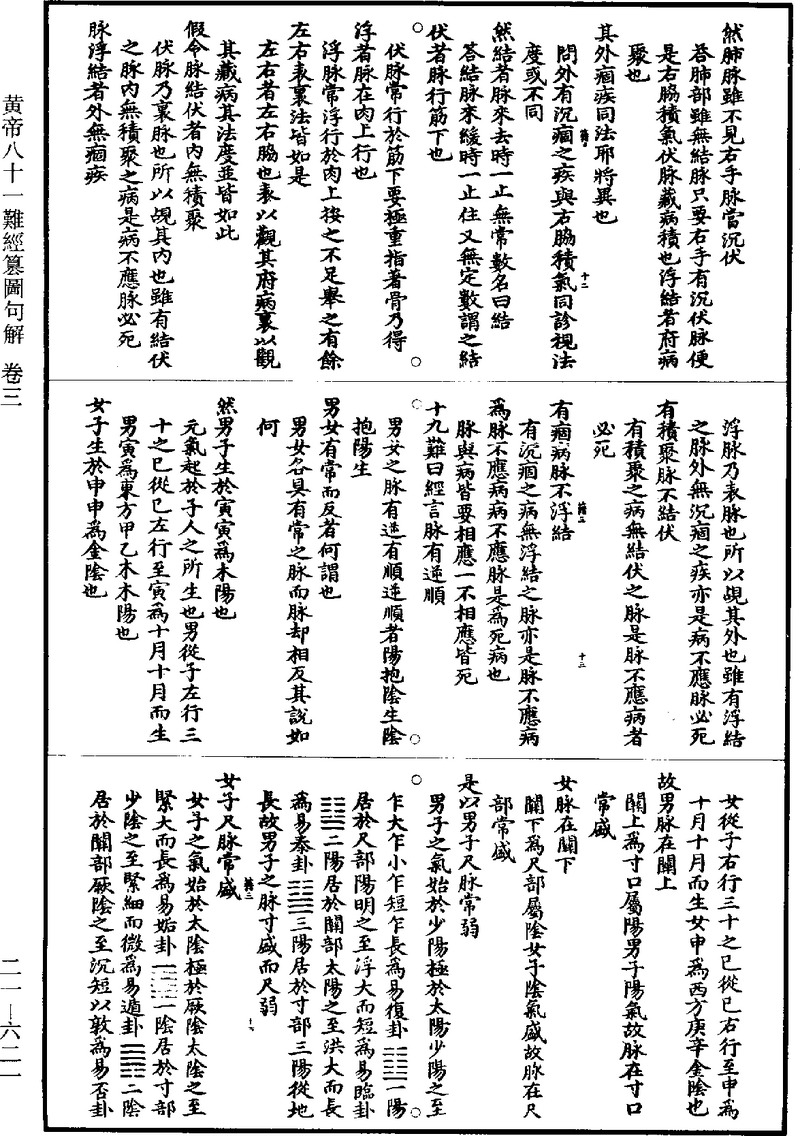 然肺脉雖不見右手脉當沉伏
荅肺部雖無結脉只要右手有沉伏脉便
是右脇積氣伏脉藏病積也浮結者府病
聚也
其外痼疾同法耶將異也
問外有沉痼之疾與右脇積氣同診視法
度或不同
然結者脉來去時一止無常數名曰結
荅結脉來緩時一止住又無定數謂之結
伏者脉行筋下也
伏脉常行於筋下要極重指著骨乃得
浮者脉在肉上行也
浮脉常浮行於肉上按之不足舉之有餘
左右表裏法皆如是
左右者左右脇也表以觀其府病裏以觀
其藏病其法度並皆如此
假令脉結伏者內無積聚
伏脉乃裏脉也所以覘其內也雖有結伏
之脉內無積聚之病是病不應脉必死
脉浮結者外無痼疾
浮脉乃表脉也所以覘其外也雖有浮結
之脉外無沉痼之疾亦是病不應脉必死
有積聚脉不結伏
有積聚之病無結伏之脉是脉不應病者
必死
有痼病脉不浮結
有沉痼之病無浮結之脉亦是脉不應病
爲脉不應病病不應脉是爲死病也
脉與病皆要相應一不相應皆死
十九難曰經言脉有逆順
男女之脉有逆有順逆順者陽抱陰生陰
抱陽生
男女有常而反者何謂也
男女各具有常之脉而脉却相反其說如
何
然男子生於寅寅爲木陽也
元氣起於子人之所生也男從子左行三
十之巳從巳左行至寅爲十月十月而生
男寅爲東方甲乙木木陽也
女子生於申申爲金陰也
女從子右行三十之巳從巳右行至申爲
十月十月而生女申爲西方庚辛金陰也
故男脉在關上
關上爲寸口屬陽男子陽氣故脉在寸口
常盛
女脉在關下
關下爲尺部屬陰女子陰氣盛故脉在尺
部常盛
是以男子尺脉常弱
男子之氣始於少陽極於太陽少陽之至
乍大乍小乍短乍長爲易復卦䷗一陽
居於尺部陽明之至浮大而短爲易臨卦
䷒二陽居於關部太陽之至洪大而長
爲易泰卦䷊三陽居於寸部三陽從地
長故男子之脉寸盛而尺弱
女子尺脉常盛
女子之氣始於太陰極於厥陰太陰之至
緊大而長爲易姤卦䷫一陰居於寸部
少陰之至緊細而微爲易遁卦䷠二陰
居於關部厥陰之至沉短以敦爲易否卦
黄帝八十一難經纂圖句解 卷三
二一—六二一